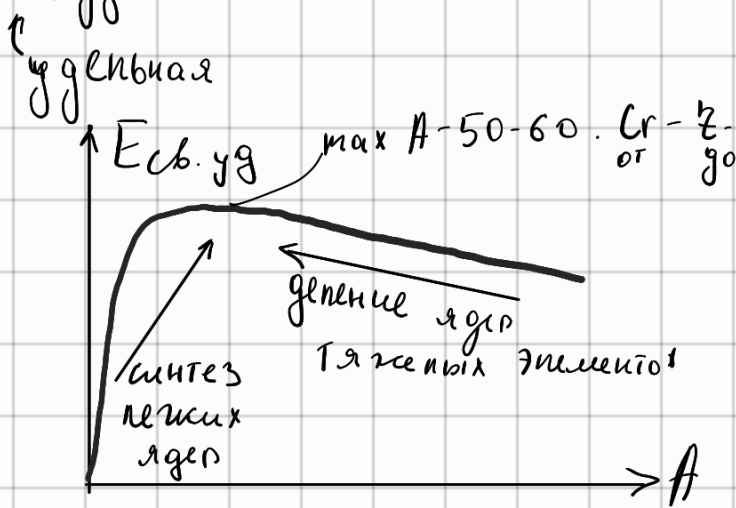 удельная
Eсв. уд
max А-50-60. Cr -
от
до
деление ядер
тяжелых элементов
синтез
легких
ядер
A